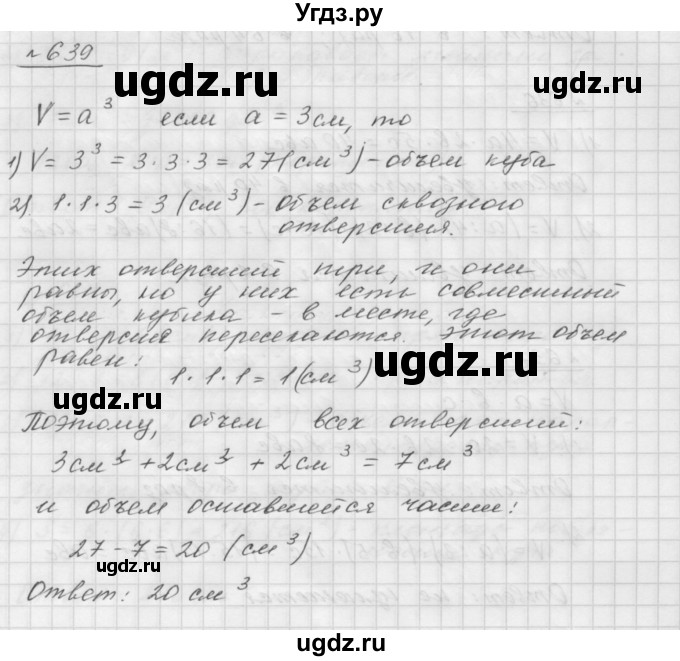 Угдз.ру
n 639
ugdz.ru ugdz.ru
V = a³ если a = 3см, то
1) V = 3³ = 3·3·3 = 27(см³) - объем куба
2) 1·1·3 = 3 (см³) - объем сквозного
отверстия.
ugdz.ru
Этих отверстий три, и они
равны, но у них есть совместный
объем кубика - в месте, где
отверстия пересекаются. Этот объем
равен:
1·1·1 = 1(см³)
ugdz.ru ugdz.ru
Поэтому, объем всех отверстий:
3см³ + 2см³ + 2см³ = 7см³
и объем оставшейся части:
27 - 7 = 20 (см³)
ugdz.ru
Ответ: 20 см³
ugdz.ru ugdz.ru
ugdz.ru